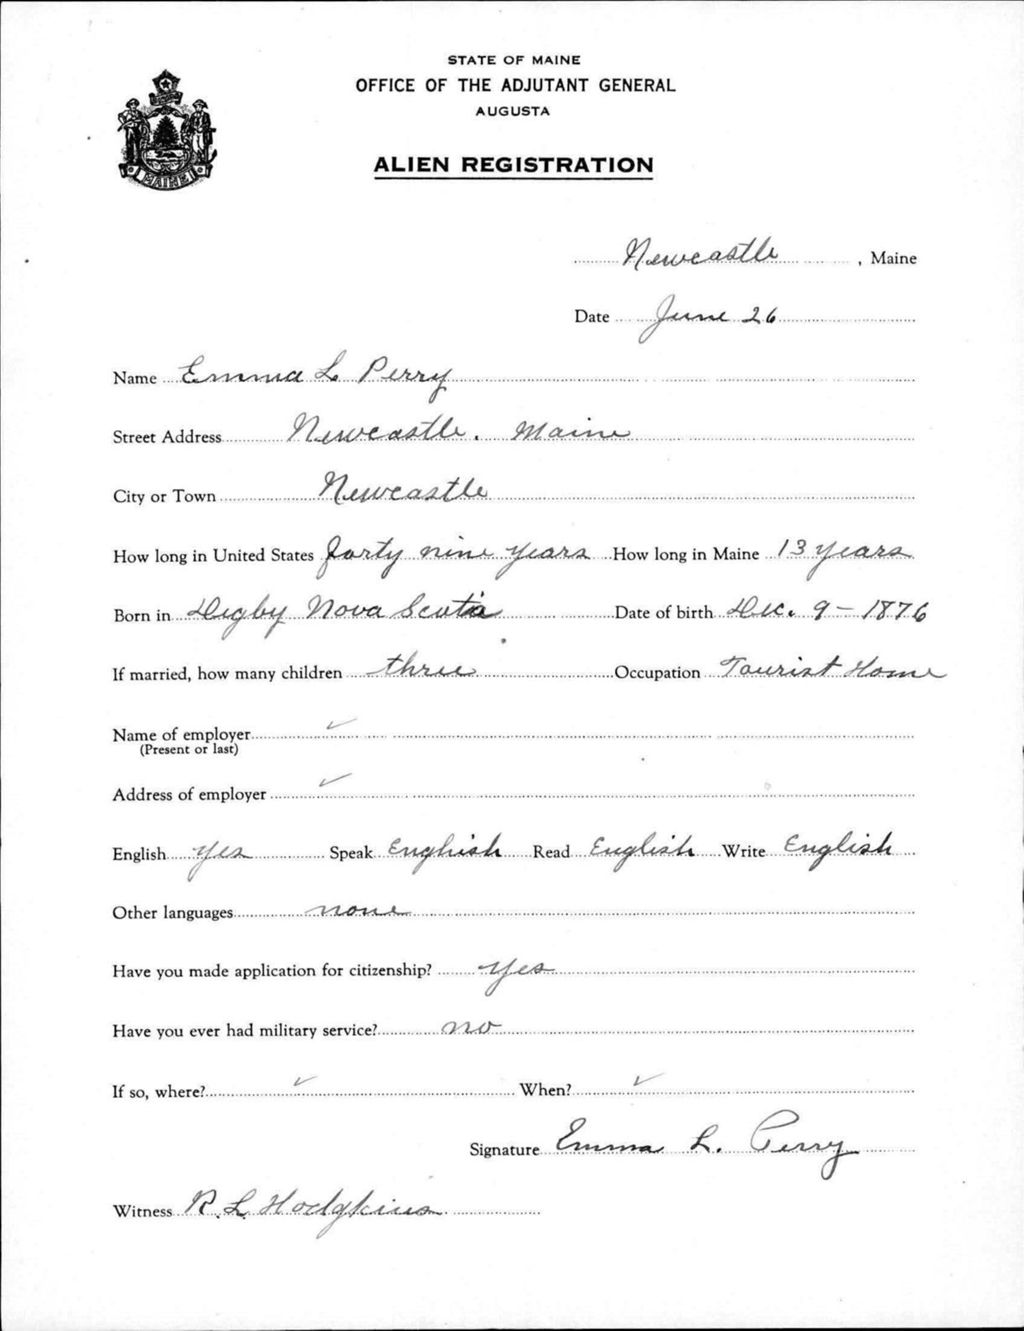 STATE OF MAINE
OFFICE OF THE ADJUTANT GENERAL
AUGUSTA
ALIEN REGISTRATION
MAINE
Newcastle, Maine
Date June 26
Name Emma L Perry
Street Address Newcastle. Maine
City or Town Newcastle
How long in United States forty nine years How long in Maine 13 years
Born in Digby Nova Scotia Date of birth Dec. 9 - 1876
If married, how many children three Occupation Tourist Home
Name of employer ✓
(Present or last)
Address of employer ✓
English yes Speak English Read English Write English
Other languages none
Have you made application for citizenship? yes
Have you ever had military service? no
If so, where? ✓ When? ✓
Signature Emma L. Perry
Witness R. L. Hodgkins